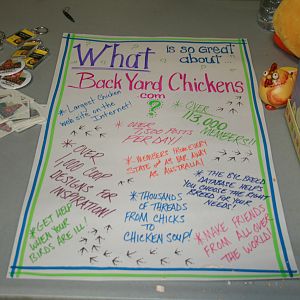 What is so great
about
BackYard Chickens
.com
?
* Largest Chicken
website on the
Internet!
* OVER
113,000
MEMBERS!
* OVER
7,500 POSTS
PER DAY!
* OVER
1,000 COOP
DESIGNS FOR
INSPIRATION!
* MEMBERS FROM EVERY
STATE & AS FAR AWAY
AS AUSTRALIA!
* THE BYC BREED
DATABASE HELPS
YOU CHOOSE THE RIGHT
BREED FOR YOUR
NEEDS
* THOUSANDS
OF THREADS
FROM CHICKS
TO
CHICKEN SOUP!
* GET HELP
WHEN YOUR
BIRDS ARE ILL
* MAKE FRIENDS
FROM ALL OVER
THE WORLD!